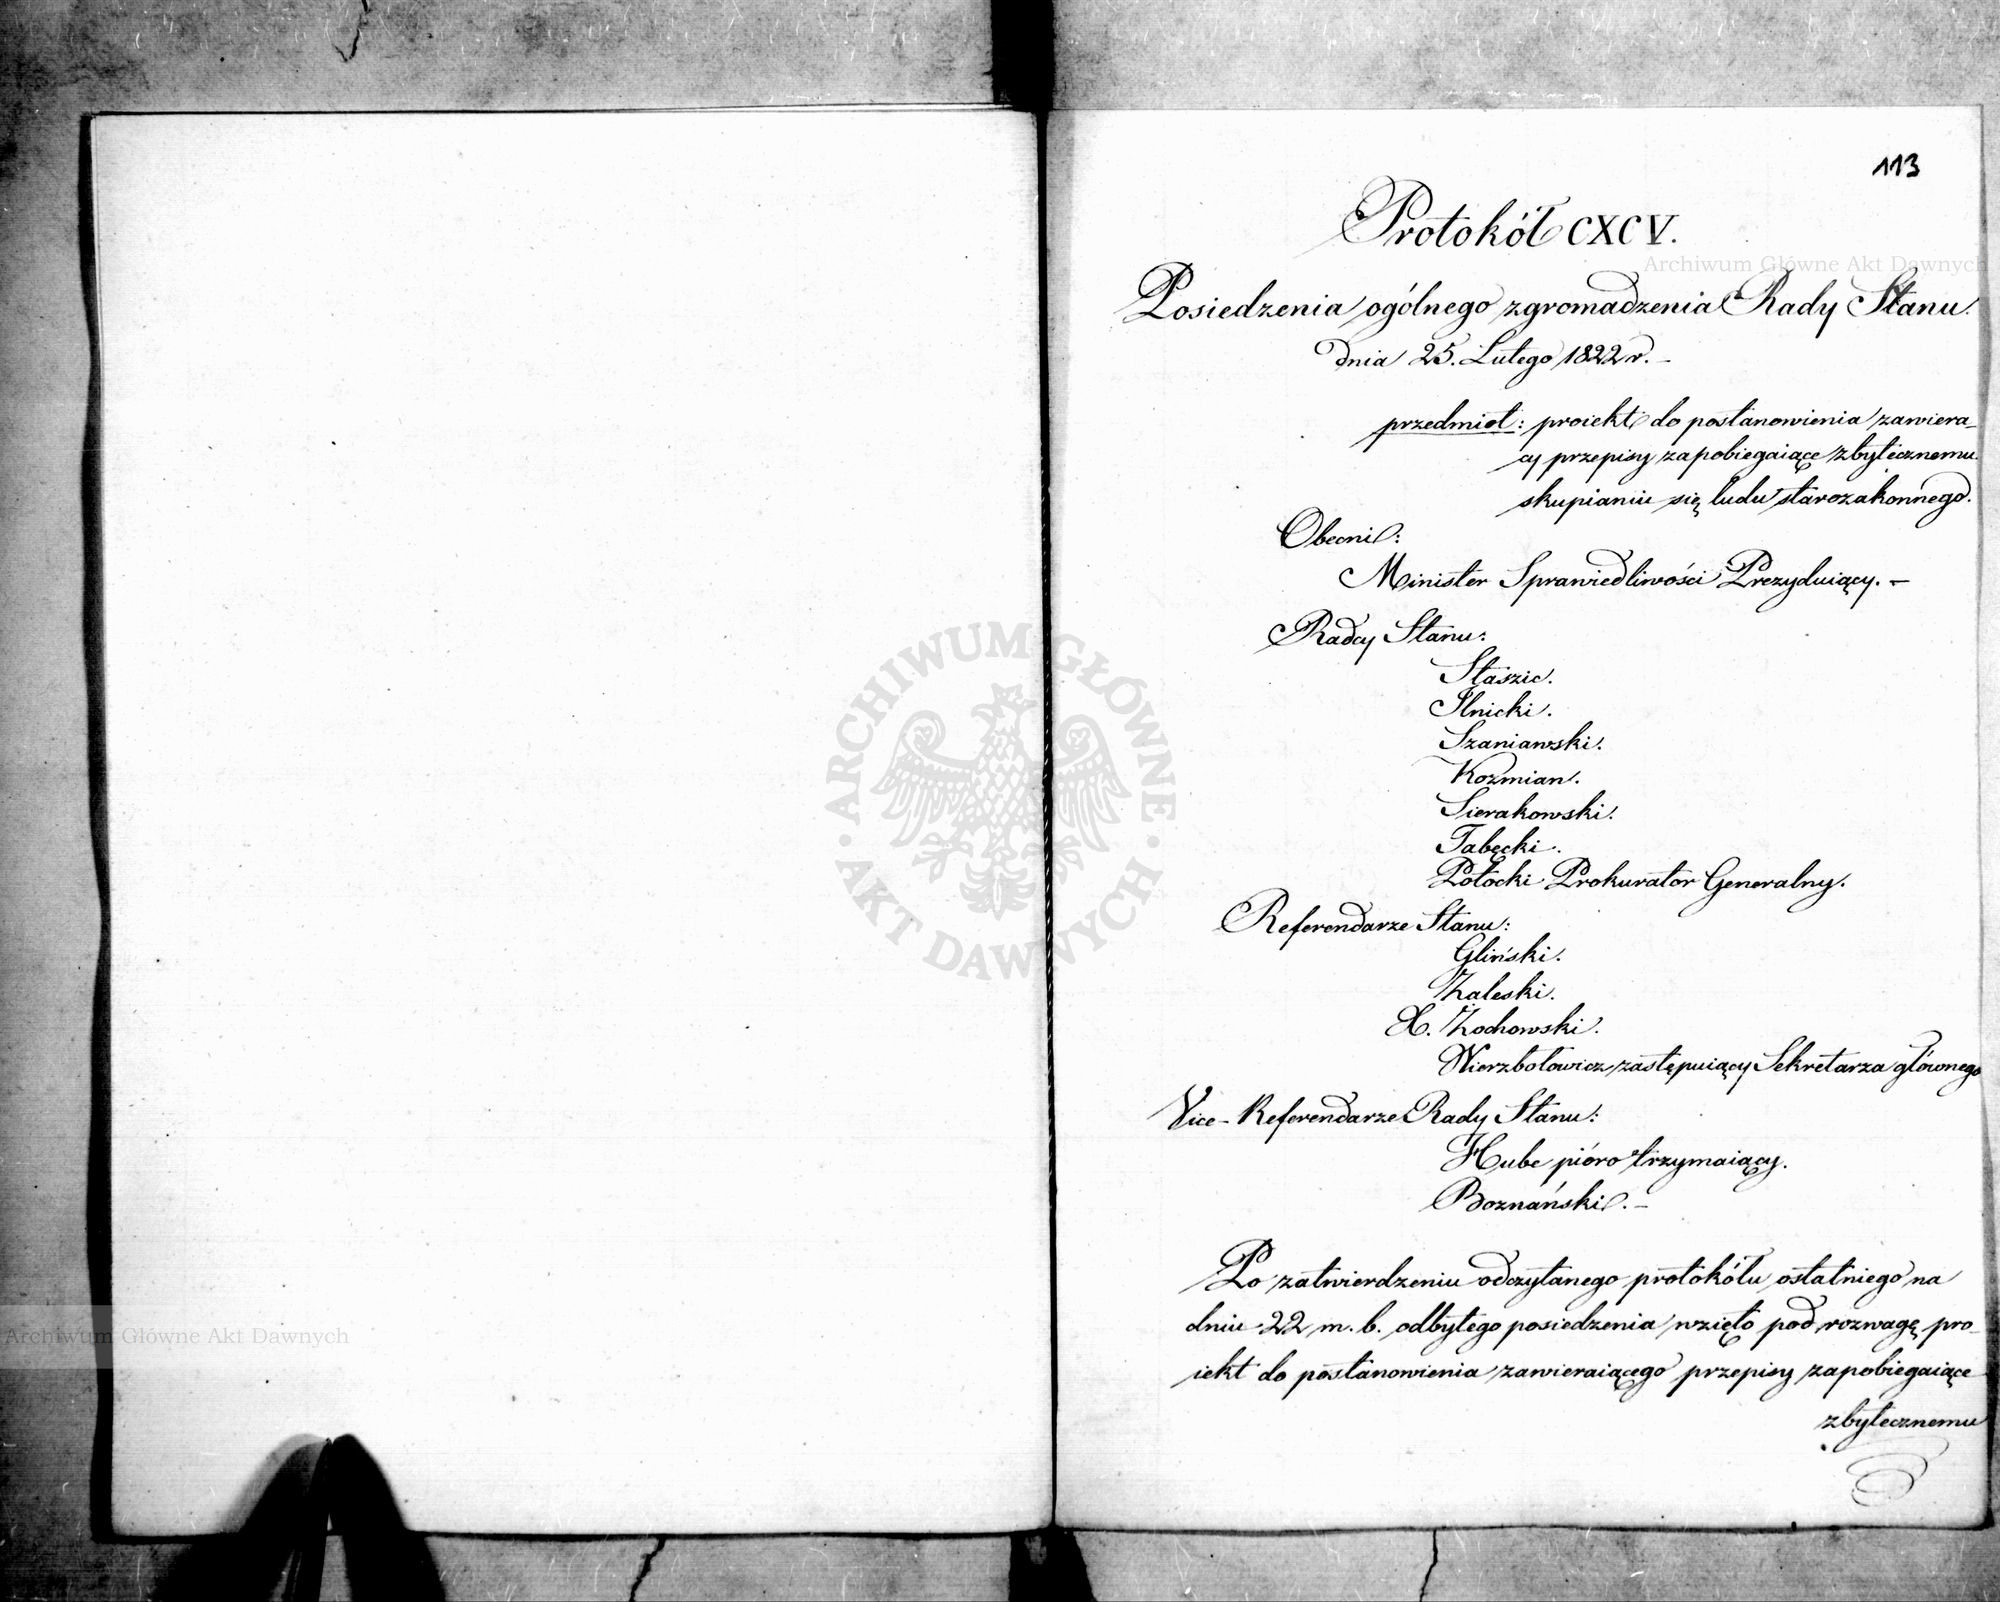 113
Protokół CXCV.
Posiedzenia ogólnego zgromadzenia Rady Stanu.
dnia 25. Lutego 1822 r. –
przedmiot: proiekt do postanowienia zawiera-
cy przepisy zapobiegaiące zbytecznemu
skupianiu się ludu starozakonnego.
Obecni:
Minister Sprawiedliwości Prezyduiący. –
Radcy Stanu:
Staszic.
Ilnicki.
Szaniawski.
Kozmian.
Sierakowski.
Tabęcki.
Potocki Prokurator Generalny.
Referendarze Stanu:
Gliński.
Zaleski.
X. Żochowski.
Wierzbołowicz zastępuiący Sekretarza głównego
Vice-Referendarze Rady Stanu:
Hube pióro trzymaiący.
Boznański. –
Po zatwierdzeniu odczytanego protokółu ostatniego na
dniu 22 m. b. odbytego posiedzenia wzięto pod rozwagę pro-
iekt do postanowienia zawieraiącego przepisy zapobiegaiące
zbytecznemu
Archiwum Główne Akt Dawnych
Archiwum Główne Akt Dawnych
ARCHIWUM GŁÓWNE
AKT DAWNYCH